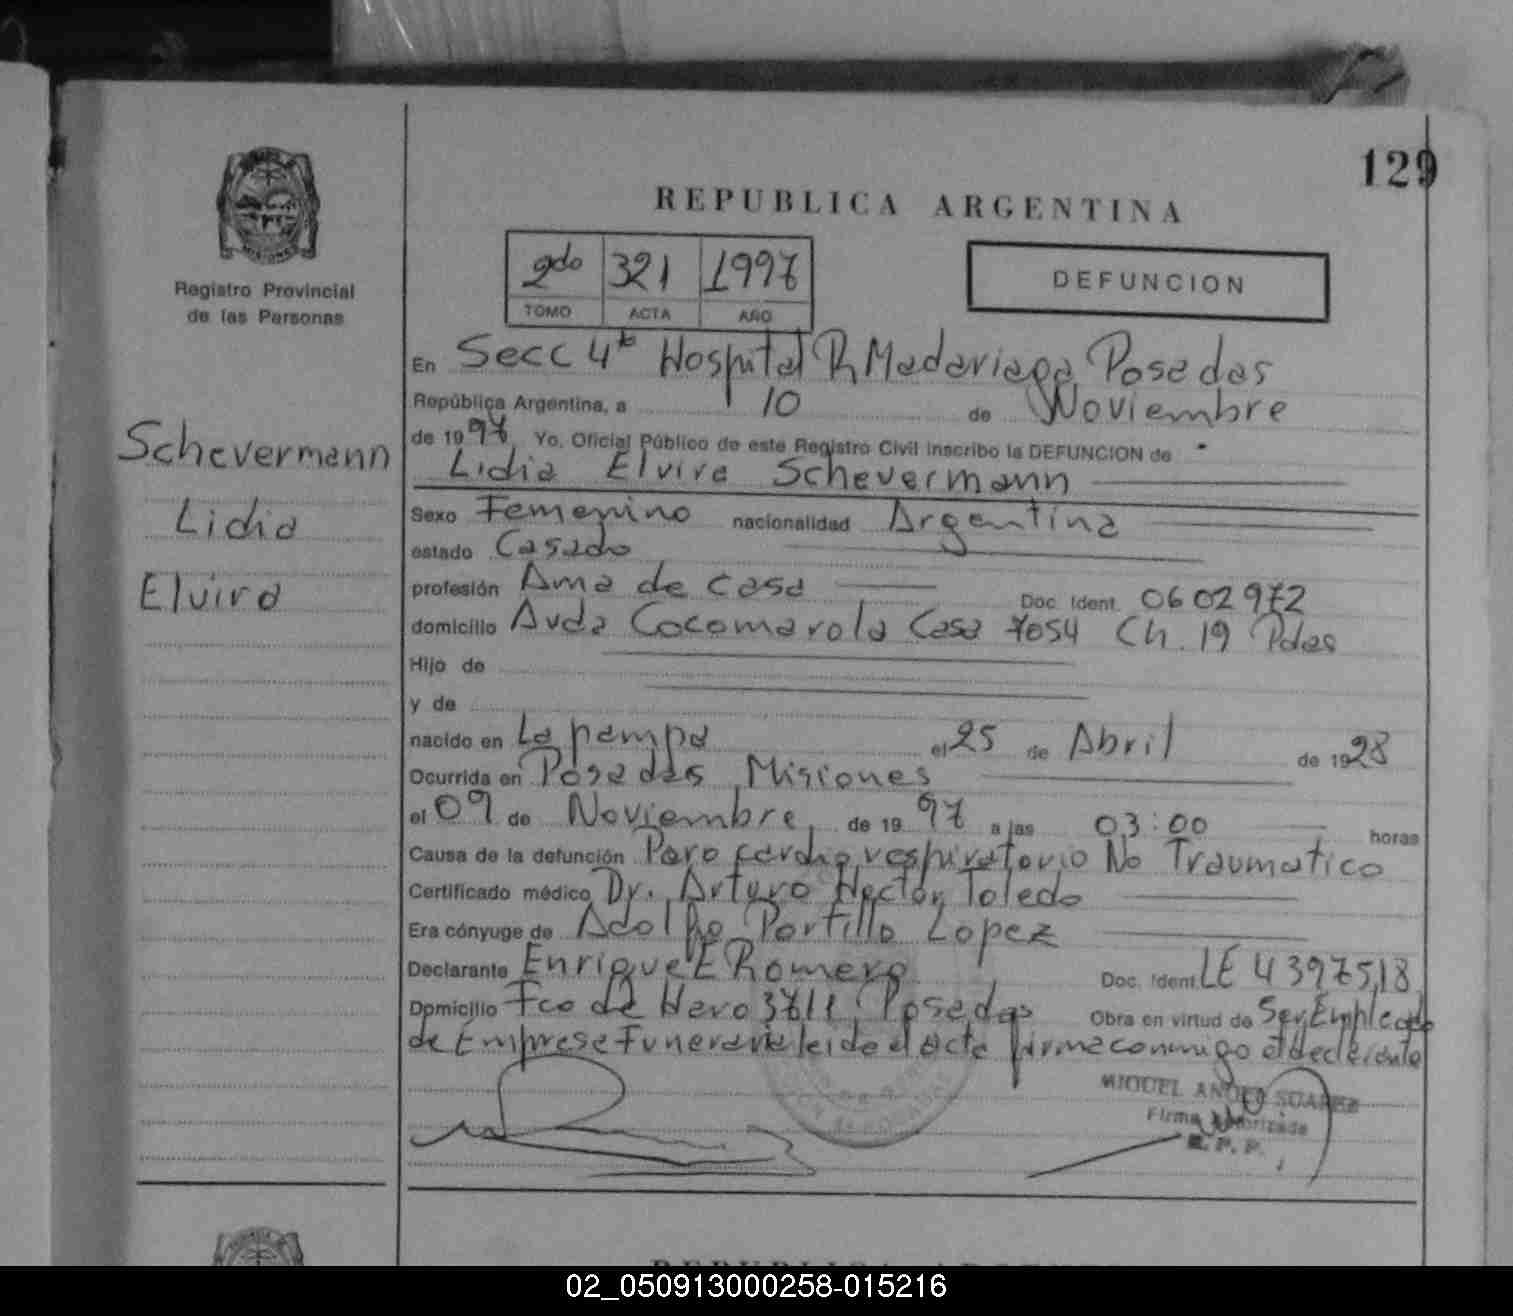 129
REPUBLICA ARGENTINA
2do 321 1997
TOMO ACTA AÑO
DEFUNCION
Registro Provincial
de las Personas
Schevermann
Lidia
Elvira
En Secc 4ta Hospital R Madariaga Posadas
República Argentina, a 10 de Noviembre
de 1997 Yo, Oficial Público de este Registro Civil inscribo la DEFUNCION de
Lidia Elvira Schevermann
Sexo Femenino nacionalidad Argentina
estado Casado
profesión Ama de casa Doc. Ident. 0602972
domicilio Avda Cocomarola Casa 7054 Ch. 19 Pdas
Hijo de
y de
nacido en La pampa el 25 de Abril de 1928
Ocurrida en Posadas Misiones
el 09 de Noviembre de 1997 a las 03:00 horas
Causa de la defunción Paro cardio respiratorio No Traumatico
Certificado médico Dr. Arturo Hector Toledo
Era cónyuge de Adolfo Portillo Lopez
Declarante Enrique E Romero Doc. Ident. LE 4397518
Domicilio Fco de Haro 3711 Posadas Obra en virtud de Ser Empleado
de Empresa Funeraria leido el acta firma conmigo el declarante
MIGUEL ANGEL SUAREZ
Firma Autorizada
R. P. P.
REPUBLICA ARGENTINA
02_050913000258-015216